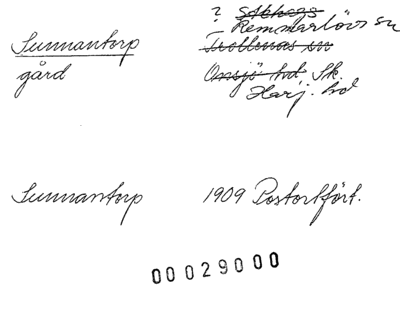 ?
Remmarlövs sn
Sunnantorp Trollenäs sn
gård Onsjö hd. Sk.
Harj. hd
Sunnantorp 1909 Postortsfört.
00029000